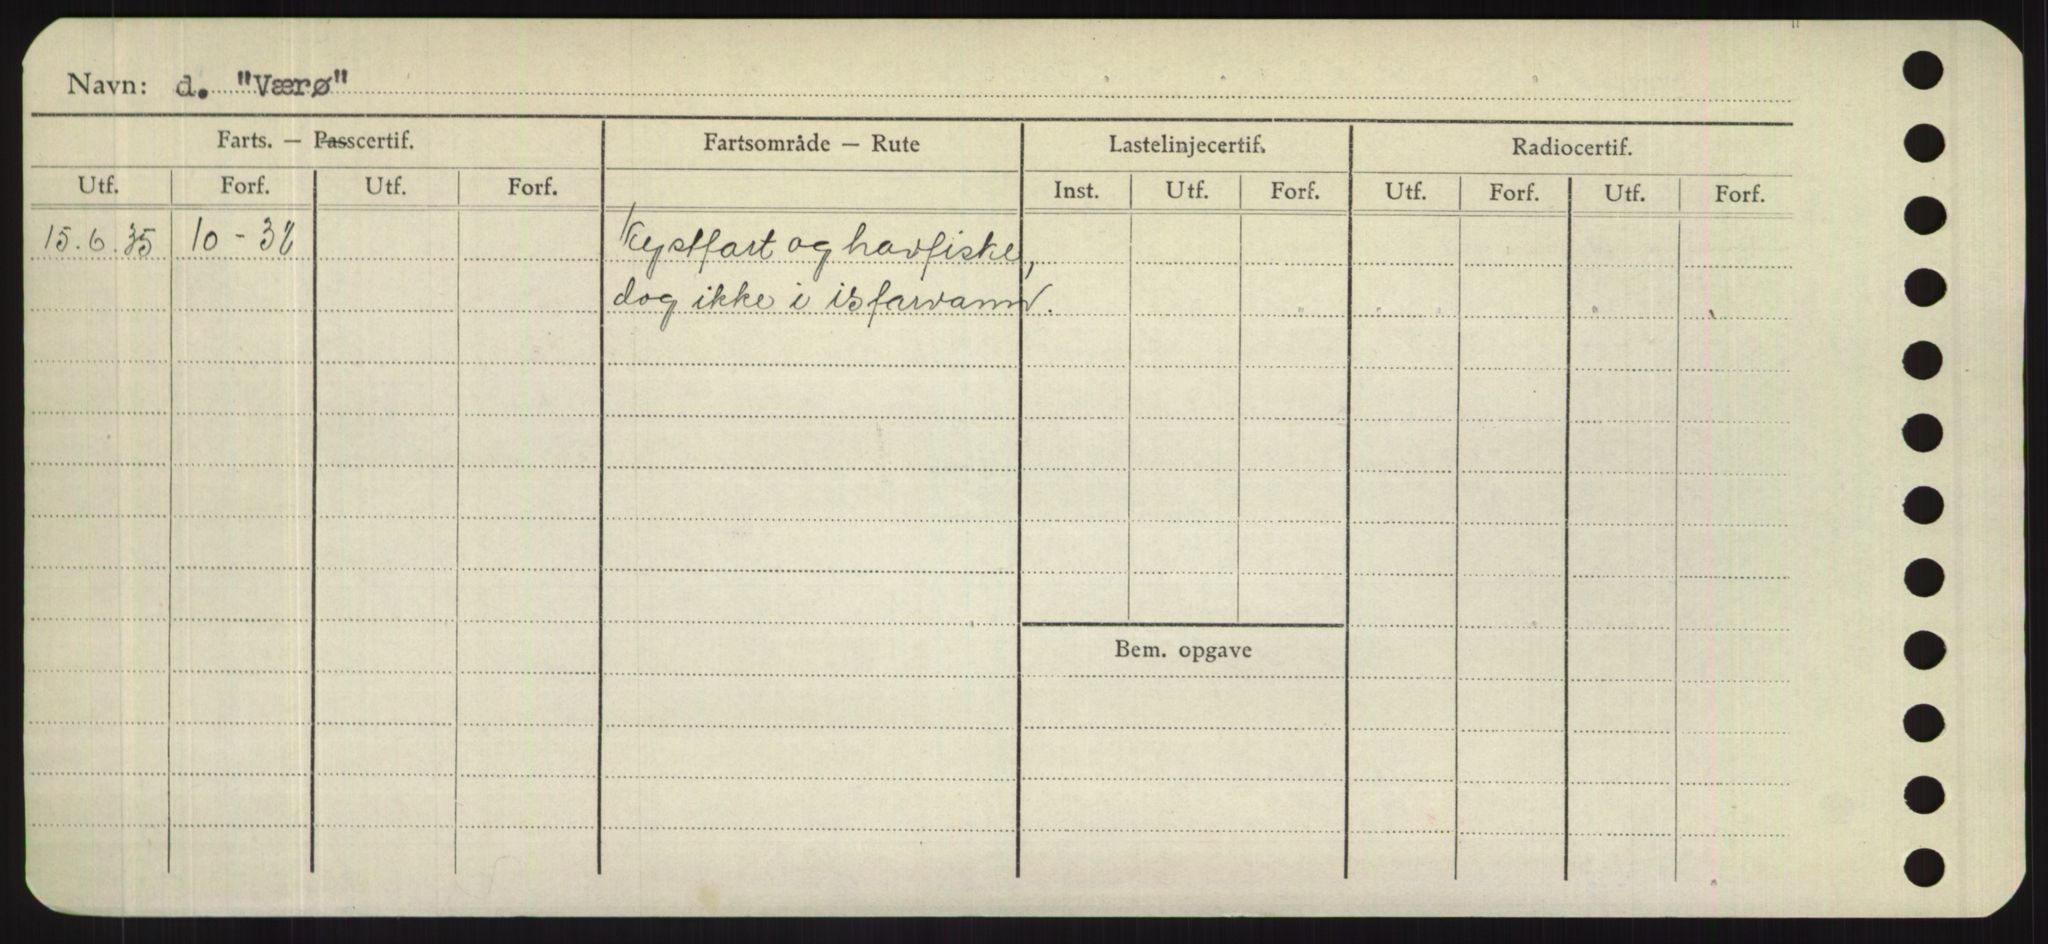 Navn: d. "Værø"
Farts. — Passcertif. Fartsområde — Rute Lastelinjecertif. Radiocertif.
Utf. Forf. Utf. Forf. Inst. Utf. Forf. Utf. Forf. Utf. Forf.
15.6.35 10-38 Kystfart og havfiske,
dog ikke i isfarvann.
Bem. opgave